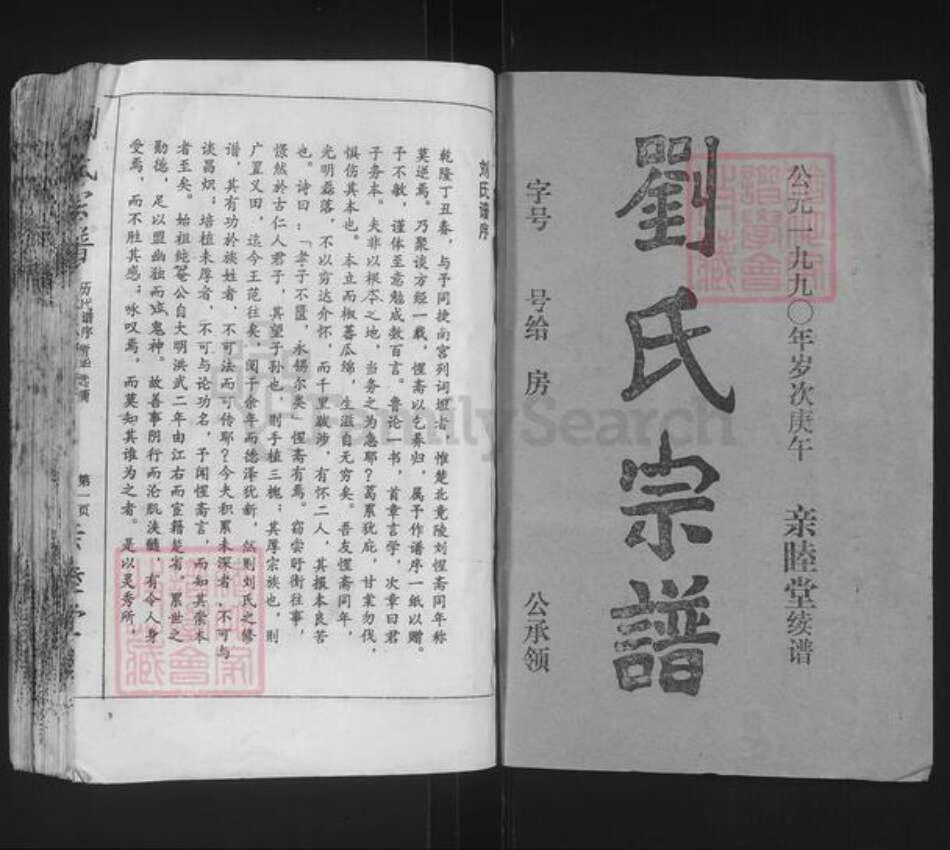 公元一九九〇年岁次庚午 亲睦堂续谱
劉氏宗譜
字号 号给 房 公承领
刘氏谱序
乾隆丁丑春,与予同捷南宫列词垣者,惟楚北竟陵刘惺斋同年称
莫逆焉。乃聚谈方经一载,惺斋以乞养归,属予作谱序一纸以赠。
予不敏,谨体至意勉成数百言。鲁论一书,首章言学,次章曰君
子务本。夫非以根本之地,当务之为急耶?葛累犹庇,甘棠勿伐,
惧伤其本也。本立而椒蕃瓜绵,生滋自无穷矣。吾友惺斋同年,
光明磊落,不以穷达介怀,而千里跋涉,有怀二人,其报本良苦
也。诗曰:「孝子不匮,永锡尔类」惺斋有焉。窃尝盱衡往事,
憬然於古仁人君子,其望子孙也,则手植三槐;其厚宗族也,则
广置义田,迄今王范往矣,阅千余年而德泽犹新,然则刘氏之修
谱,其有功於族姓者,不可法而可传耶?今夫积累未深者,不可与
谈昌炽;培植未厚者,不可与论功名,予闻惺斋言,而知其崇本
者至矣。始祖纯菴公自大明洪武二年由江右而宦籍楚省,累世之
勤德,足以盟幽独而质鬼神。故善事阴行而沦肌浃髓,有令人身
受焉,而不胜其感;咏叹焉,而莫知其谁为之者。是以灵秀所,
氏宗谱
历代谱序
第一页
FamilySearch